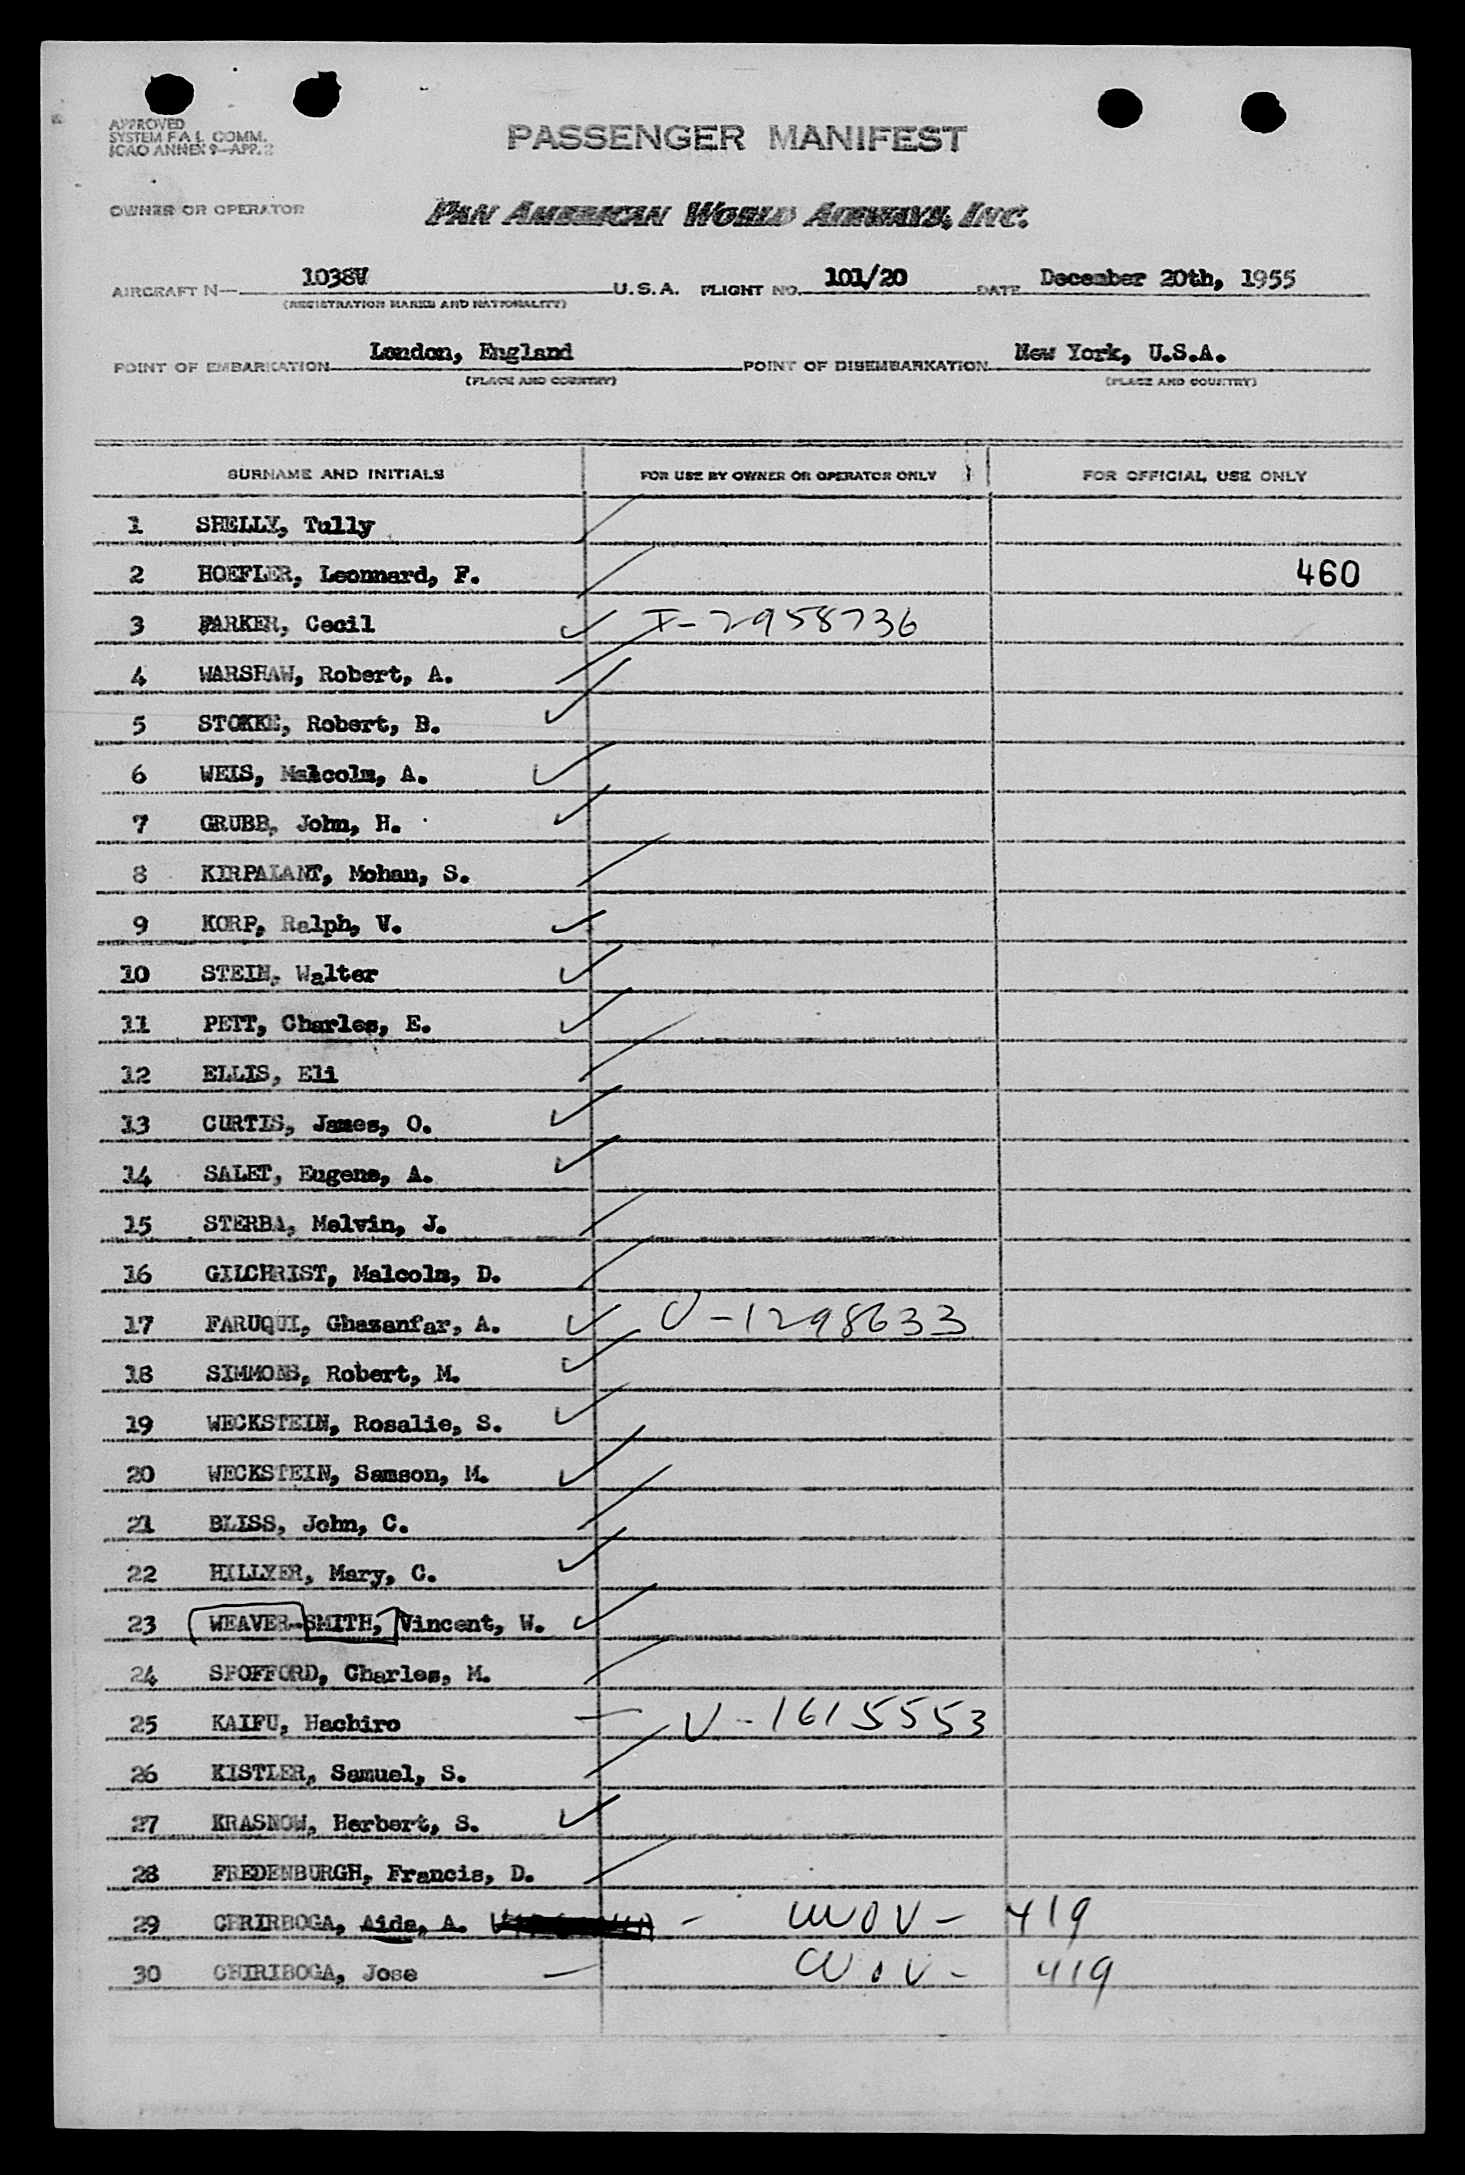 APPROVED
SYSTEM F.A.L. COMM.
ICAO ANNEX 9—APP. 2
PASSENGER MANIFEST
OWNER OR OPERATOR
PAN AMERICAN WORLD AIRWAYS, INC.
AIRCRAFT N— 1038V U.S.A. FLIGHT NO. 101/20 DATE December 20th, 1955
(REGISTRATION MARKS AND NATIONALITY)
POINT OF EMBARKATION London, England POINT OF DISEMBARKATION New York, U.S.A.
(PLACE AND COUNTRY) (PLACE AND COUNTRY)
SURNAME AND INITIALS FOR USE BY OWNER OR OPERATOR ONLY FOR OFFICIAL USE ONLY
1 SHELLY, Tully
2 HOEFLER, Leonnard, F. 460
3 PARKER, Cecil I-2958736
4 WARSHAW, Robert, A.
5 STOKKE, Robert, B.
6 WEIS, Malcolm, A.
7 GRUBB, John, H.
8 KIRPALANT, Mohan, S.
9 KORP, Ralph, V.
10 STEIN, Walter
11 PETT, Charles, E.
12 ELLIS, Eli
13 CURTIS, James, O.
14 SALET, Eugene, A.
15 STERBA, Melvin, J.
16 GILCHRIST, Malcolm, D.
17 FARUQUI, Ghazanfar, A. V-1298633
18 SIMMONS, Robert, M.
19 WECKSTEIN, Rosalie, S.
20 WECKSTEIN, Samson, M.
21 BLISS, John, C.
22 HILLYER, Mary, C.
23 WEAVER-SMITH, Vincent, W.
24 SPOFFORD, Charles, M.
25 KAIFU, Hachiro V-1615553
26 KISTLER, Samuel, S.
27 KRASNOW, Herbert, S.
28 FREDENBURGH, Francis, D.
29 CHRIRBOGA, Aida, A. - 419
30 CHIRIBOGA, Jose 419